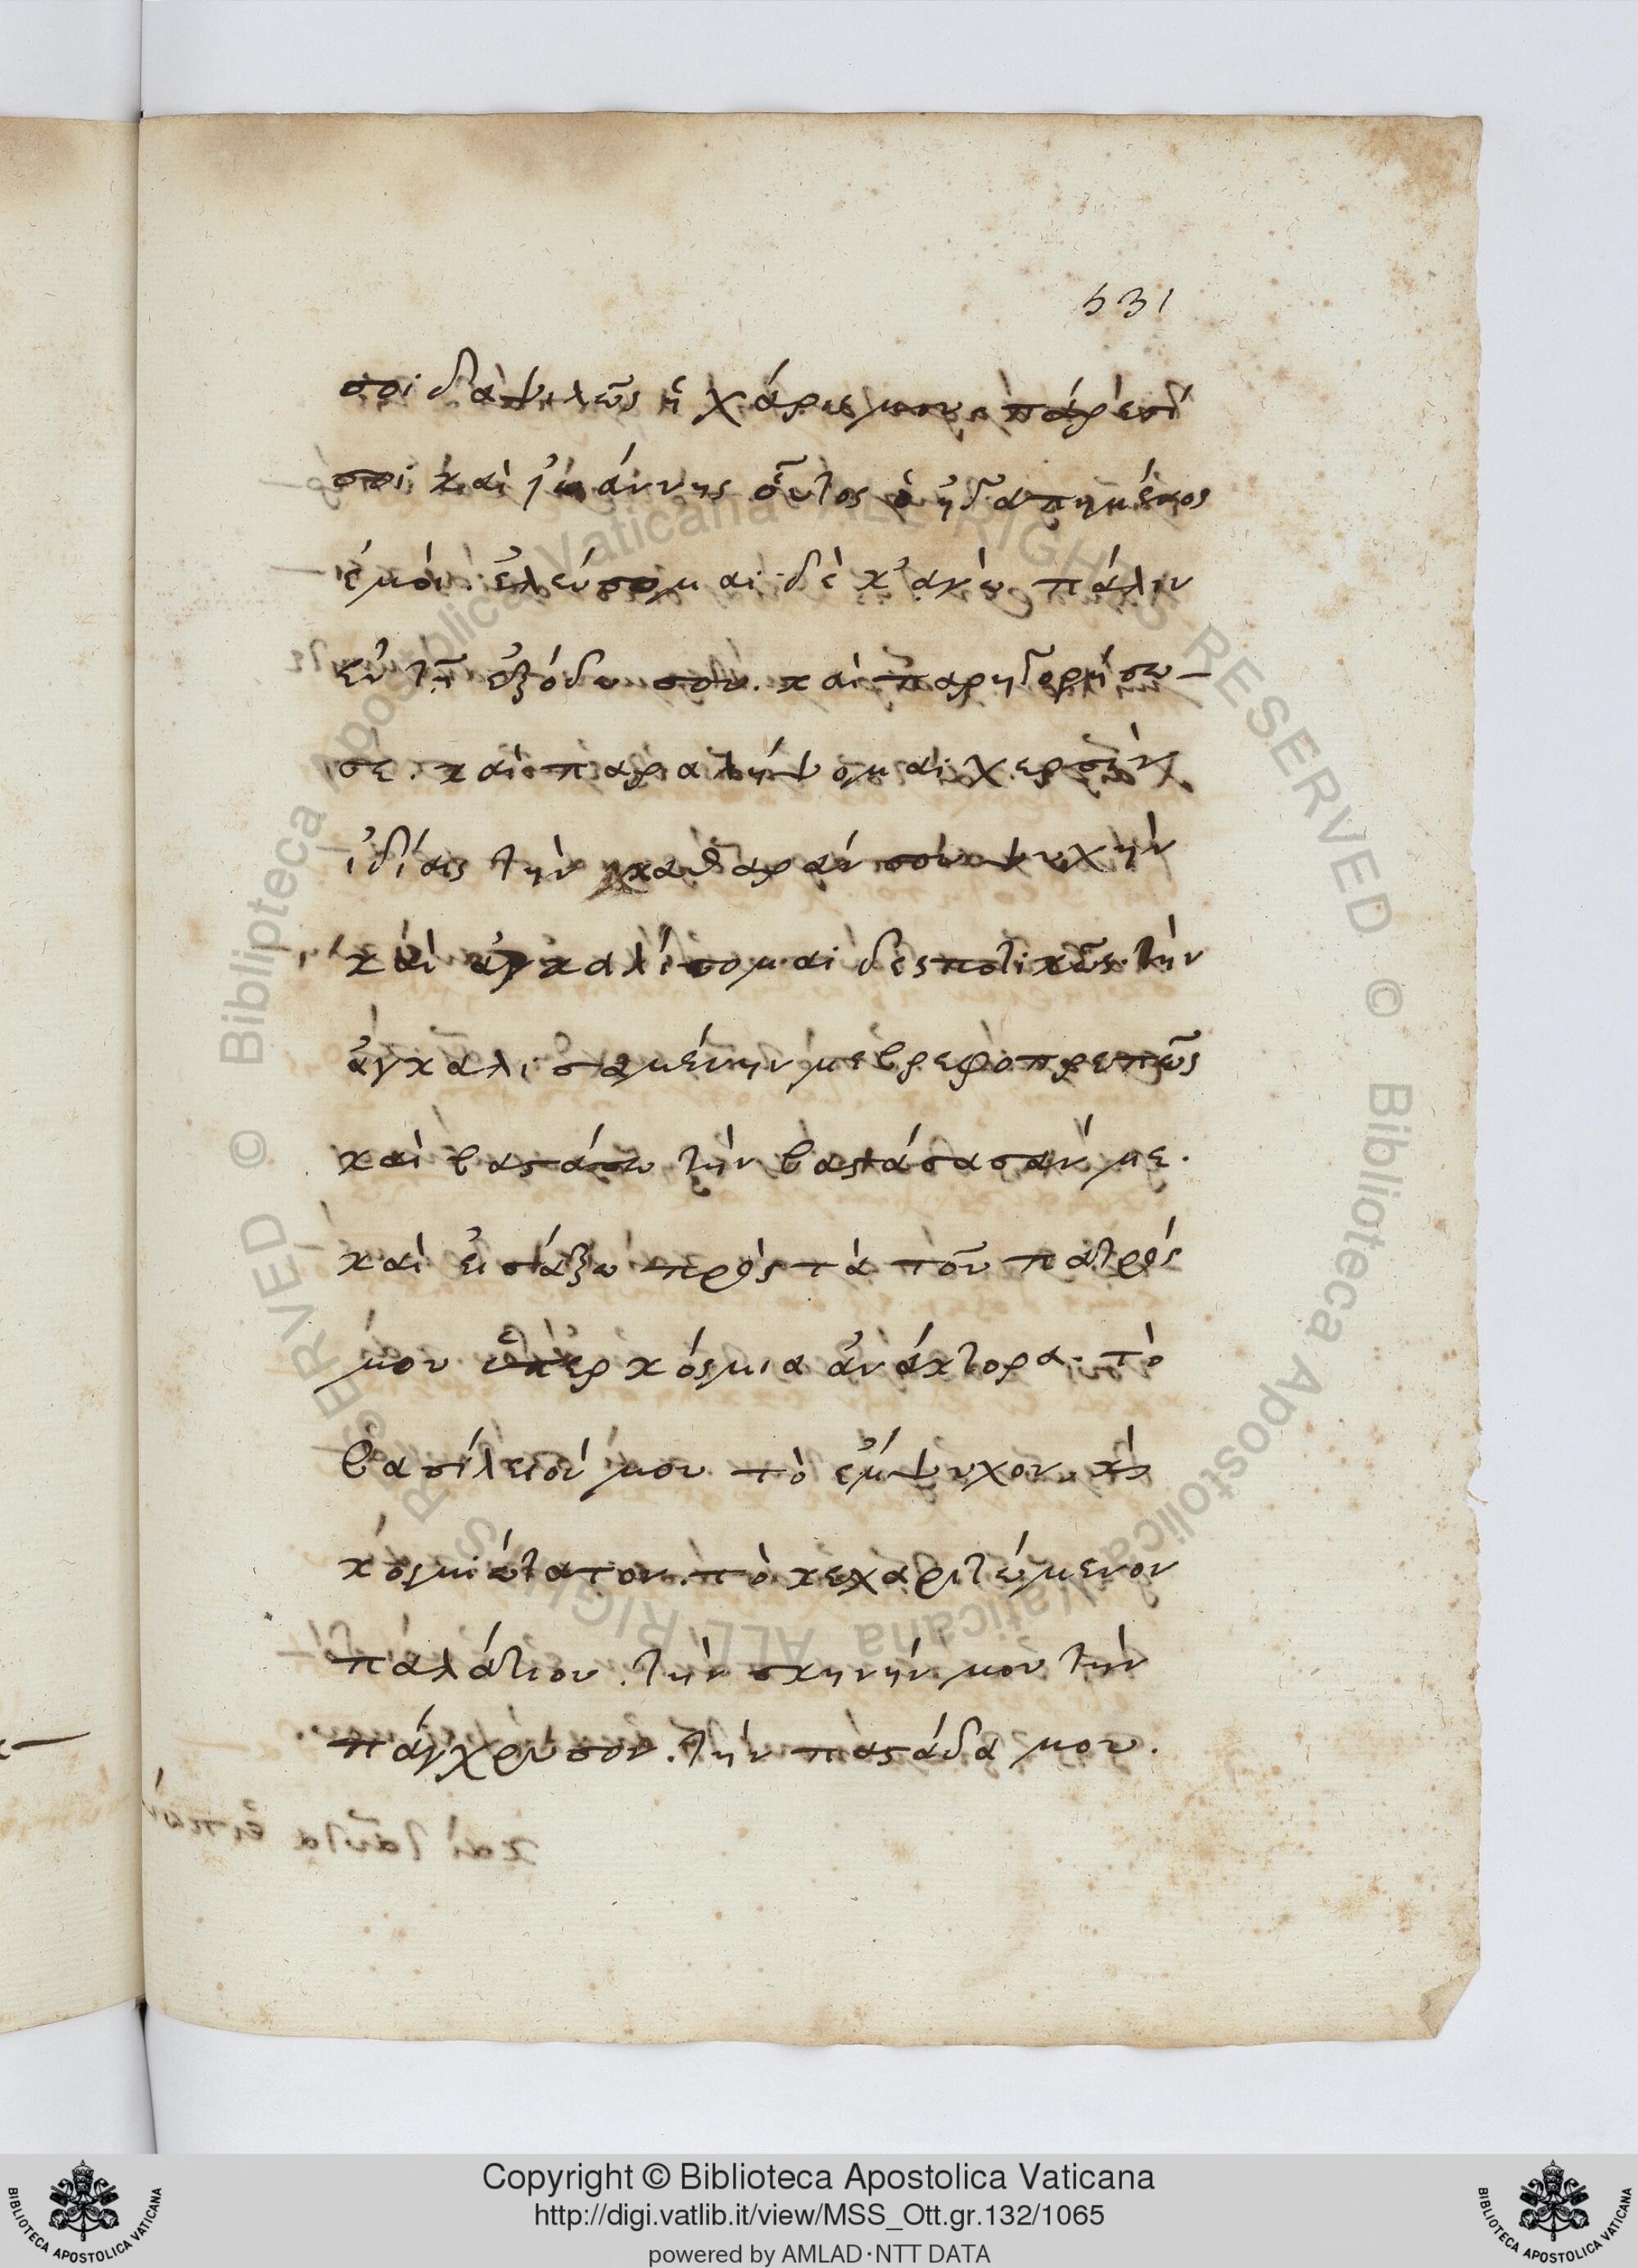 531
σοι δαψιλῶς ἡ χάρις μου. πάρεστί
σοι καὶ ἰωάννης οὗτος ὁ ἠγαπημένος
ἐμοί. ἐλεύσομαι δὲ κἀγὼ πάλιν
ἐν τῇ ἐξόδω σου. καὶ παρηγορήσω
σε. καὶ παραλήψομαι χερσὶν
ἰδίαις τὴν καθαράν σου ψυχὴν
καὶ ἀγκαλίσομαι δεσποτικῶς τὴν
ἀγκαλισαμένην με βρεφοπρεπῶς
καὶ βαστάσω τὴν βαστάσασάν με.
καὶ εἰσάξω πρὸς τὰ τοῦ πατρός
μου ὑπερκόσμια ἀνάκτορα. τὸ
βασίλειόν μου τὸ ἔμψυχον. καὶ
κοσμιώτατον. τὸ κεχαριτωμένον
παλάτιον. τὴν σκηνήν μου τὴν
πάγχρυσον. τὴν παστάδα μου.
καὶ ταῦτα εἰπὼν
Copyright © Biblioteca Apostolica Vaticana
http://digi.vatlib.it/view/MSS_Ott.gr.132/1065
powered by AMLAD·NTT DATA
BIBLIOTECA APOSTOLICA VATICANA
BIBLIOTECA APOSTOLICA VATICANA
© Biblioteca Apostolica Vaticana ALL RIGHTS RESERVED
© Biblioteca Apostolica Vaticana ALL RIGHTS RESERVED